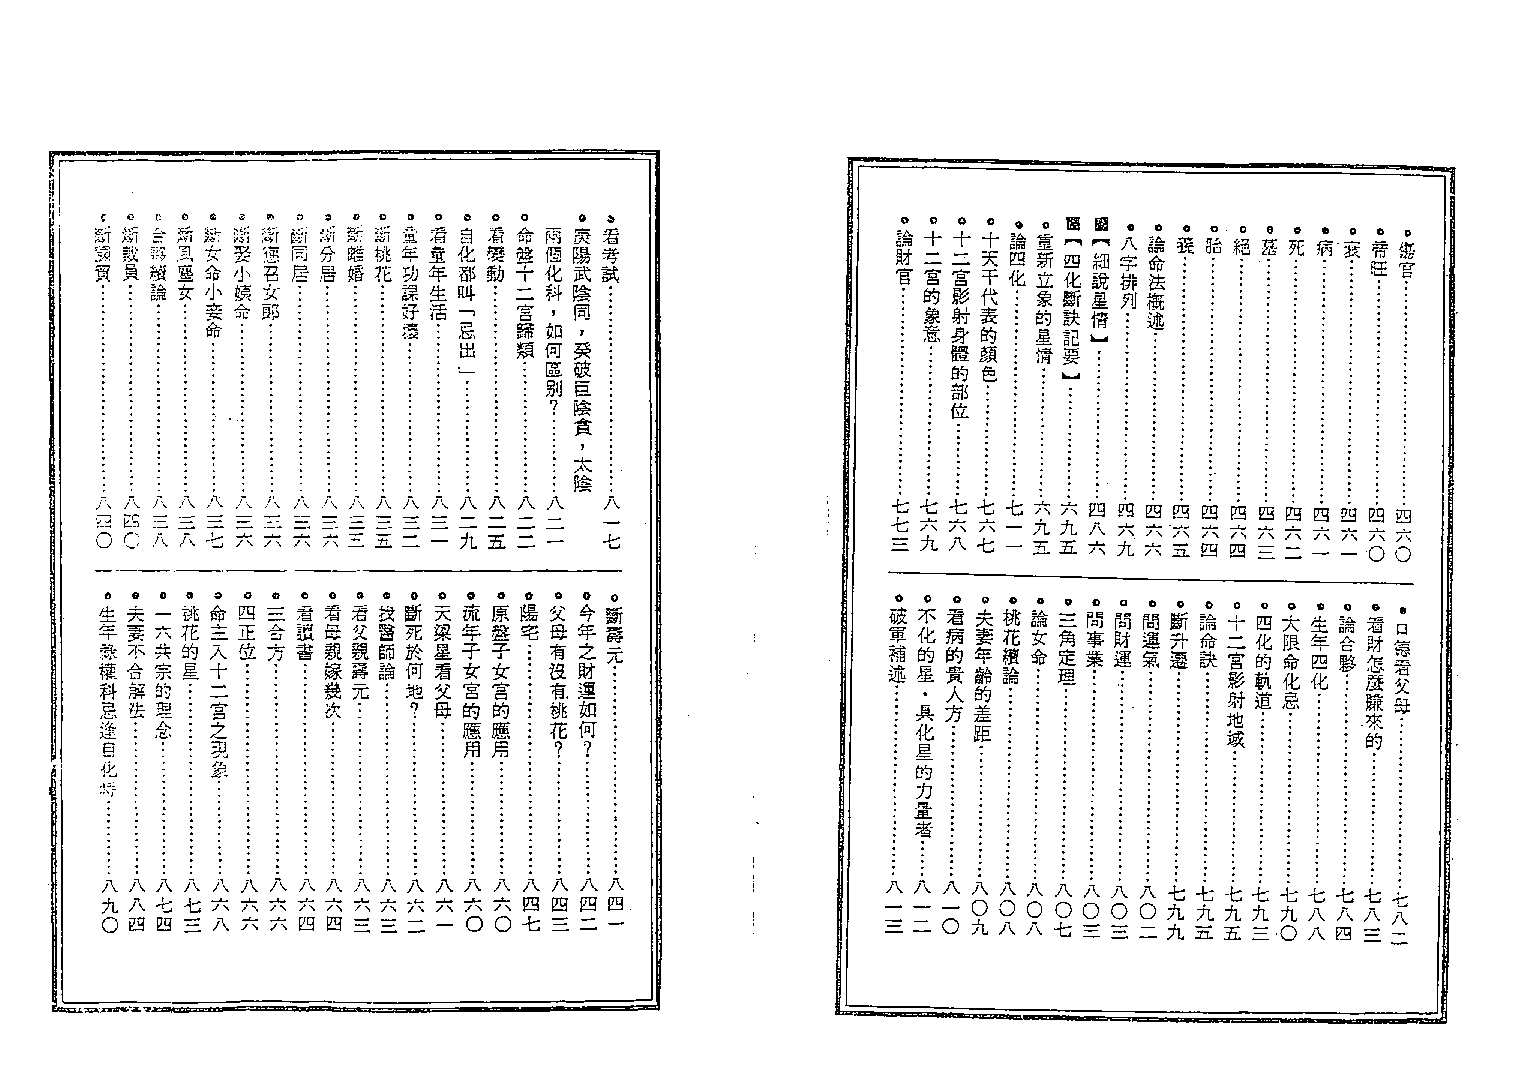 臨官⋯⋯四六〇
帝旺⋯⋯四六〇
衰⋯⋯四六一
病⋯⋯四六一
死⋯⋯四六二
墓⋯⋯四六三
絕⋯⋯四六四
胎⋯⋯四六四
養⋯⋯四六五
論命法概述⋯⋯四六六
八字排列⋯⋯四六九
【細說星情】⋯⋯四八六
【四化斷訣記要】⋯⋯六九五
重新立象的星情⋯⋯六九五
論四化⋯⋯七一一
十天干代表的顏色⋯⋯七六七
十二宮影射身體的部位⋯⋯七六八
十二宮的象意⋯⋯七六九
論財官⋯⋯七七三
看父母⋯⋯七八二
看財怎麼賺來的⋯⋯七八三
論合夥⋯⋯七八四
生年四化⋯⋯七八八
大限命化忌⋯⋯七九〇
四化的軌道⋯⋯七九三
十二宮影射地域⋯⋯七九五
論命訣⋯⋯七九五
斷升遷⋯⋯七九九
問運氣⋯⋯八〇二
問財運⋯⋯八〇三
問事業⋯⋯八〇三
三角定理⋯⋯八〇七
論女命⋯⋯八〇八
桃花續論⋯⋯八〇八
夫妻年齡的差距⋯⋯八〇九
看病的貴人方⋯⋯八一〇
不化的星・具化星的力量者⋯⋯八一二
破軍補述⋯⋯八一三
看考試⋯⋯八一七
庚陽武陰同，癸破巨陰貪，太陰
兩個化科，如何區別？⋯⋯八二一
命盤十二宮歸類⋯⋯八二二
看變動⋯⋯八二五
自化都叫「忌出」⋯⋯八二九
看童年生活⋯⋯八三一
童年功課好壞⋯⋯八三二
斷桃花⋯⋯八三五
斷離婚⋯⋯八三三
斷分居⋯⋯八三六
斷同居⋯⋯八三六
斷應召女郎⋯⋯八三六
斷娶小姨命⋯⋯八三六
斷女命小妾命⋯⋯八三七
斷風塵女⋯⋯八三八
合夥續論⋯⋯八三八
斷議員⋯⋯八四〇
斷貧⋯⋯八四〇
斷壽元⋯⋯八四一
今年之財運如何？⋯⋯八四二
父母有沒有桃花？⋯⋯八四三
陽宅⋯⋯八四七
原盤子女宮的應用⋯⋯八六〇
流年子女宮的應用⋯⋯八六〇
天梁星看父母⋯⋯八六一
斷死於何地？⋯⋯八六二
找醫師論⋯⋯八六三
看父親壽元⋯⋯八六三
看母親嫁幾次⋯⋯八六四
看讀書⋯⋯八六四
三合方⋯⋯八六六
四正位⋯⋯八六六
命主入十二宮之現象⋯⋯八六八
桃花的星⋯⋯八七三
一六共宗的理念⋯⋯八七四
夫妻不合解法⋯⋯八八四
生年祿權科忌逢自化時⋯⋯八九〇